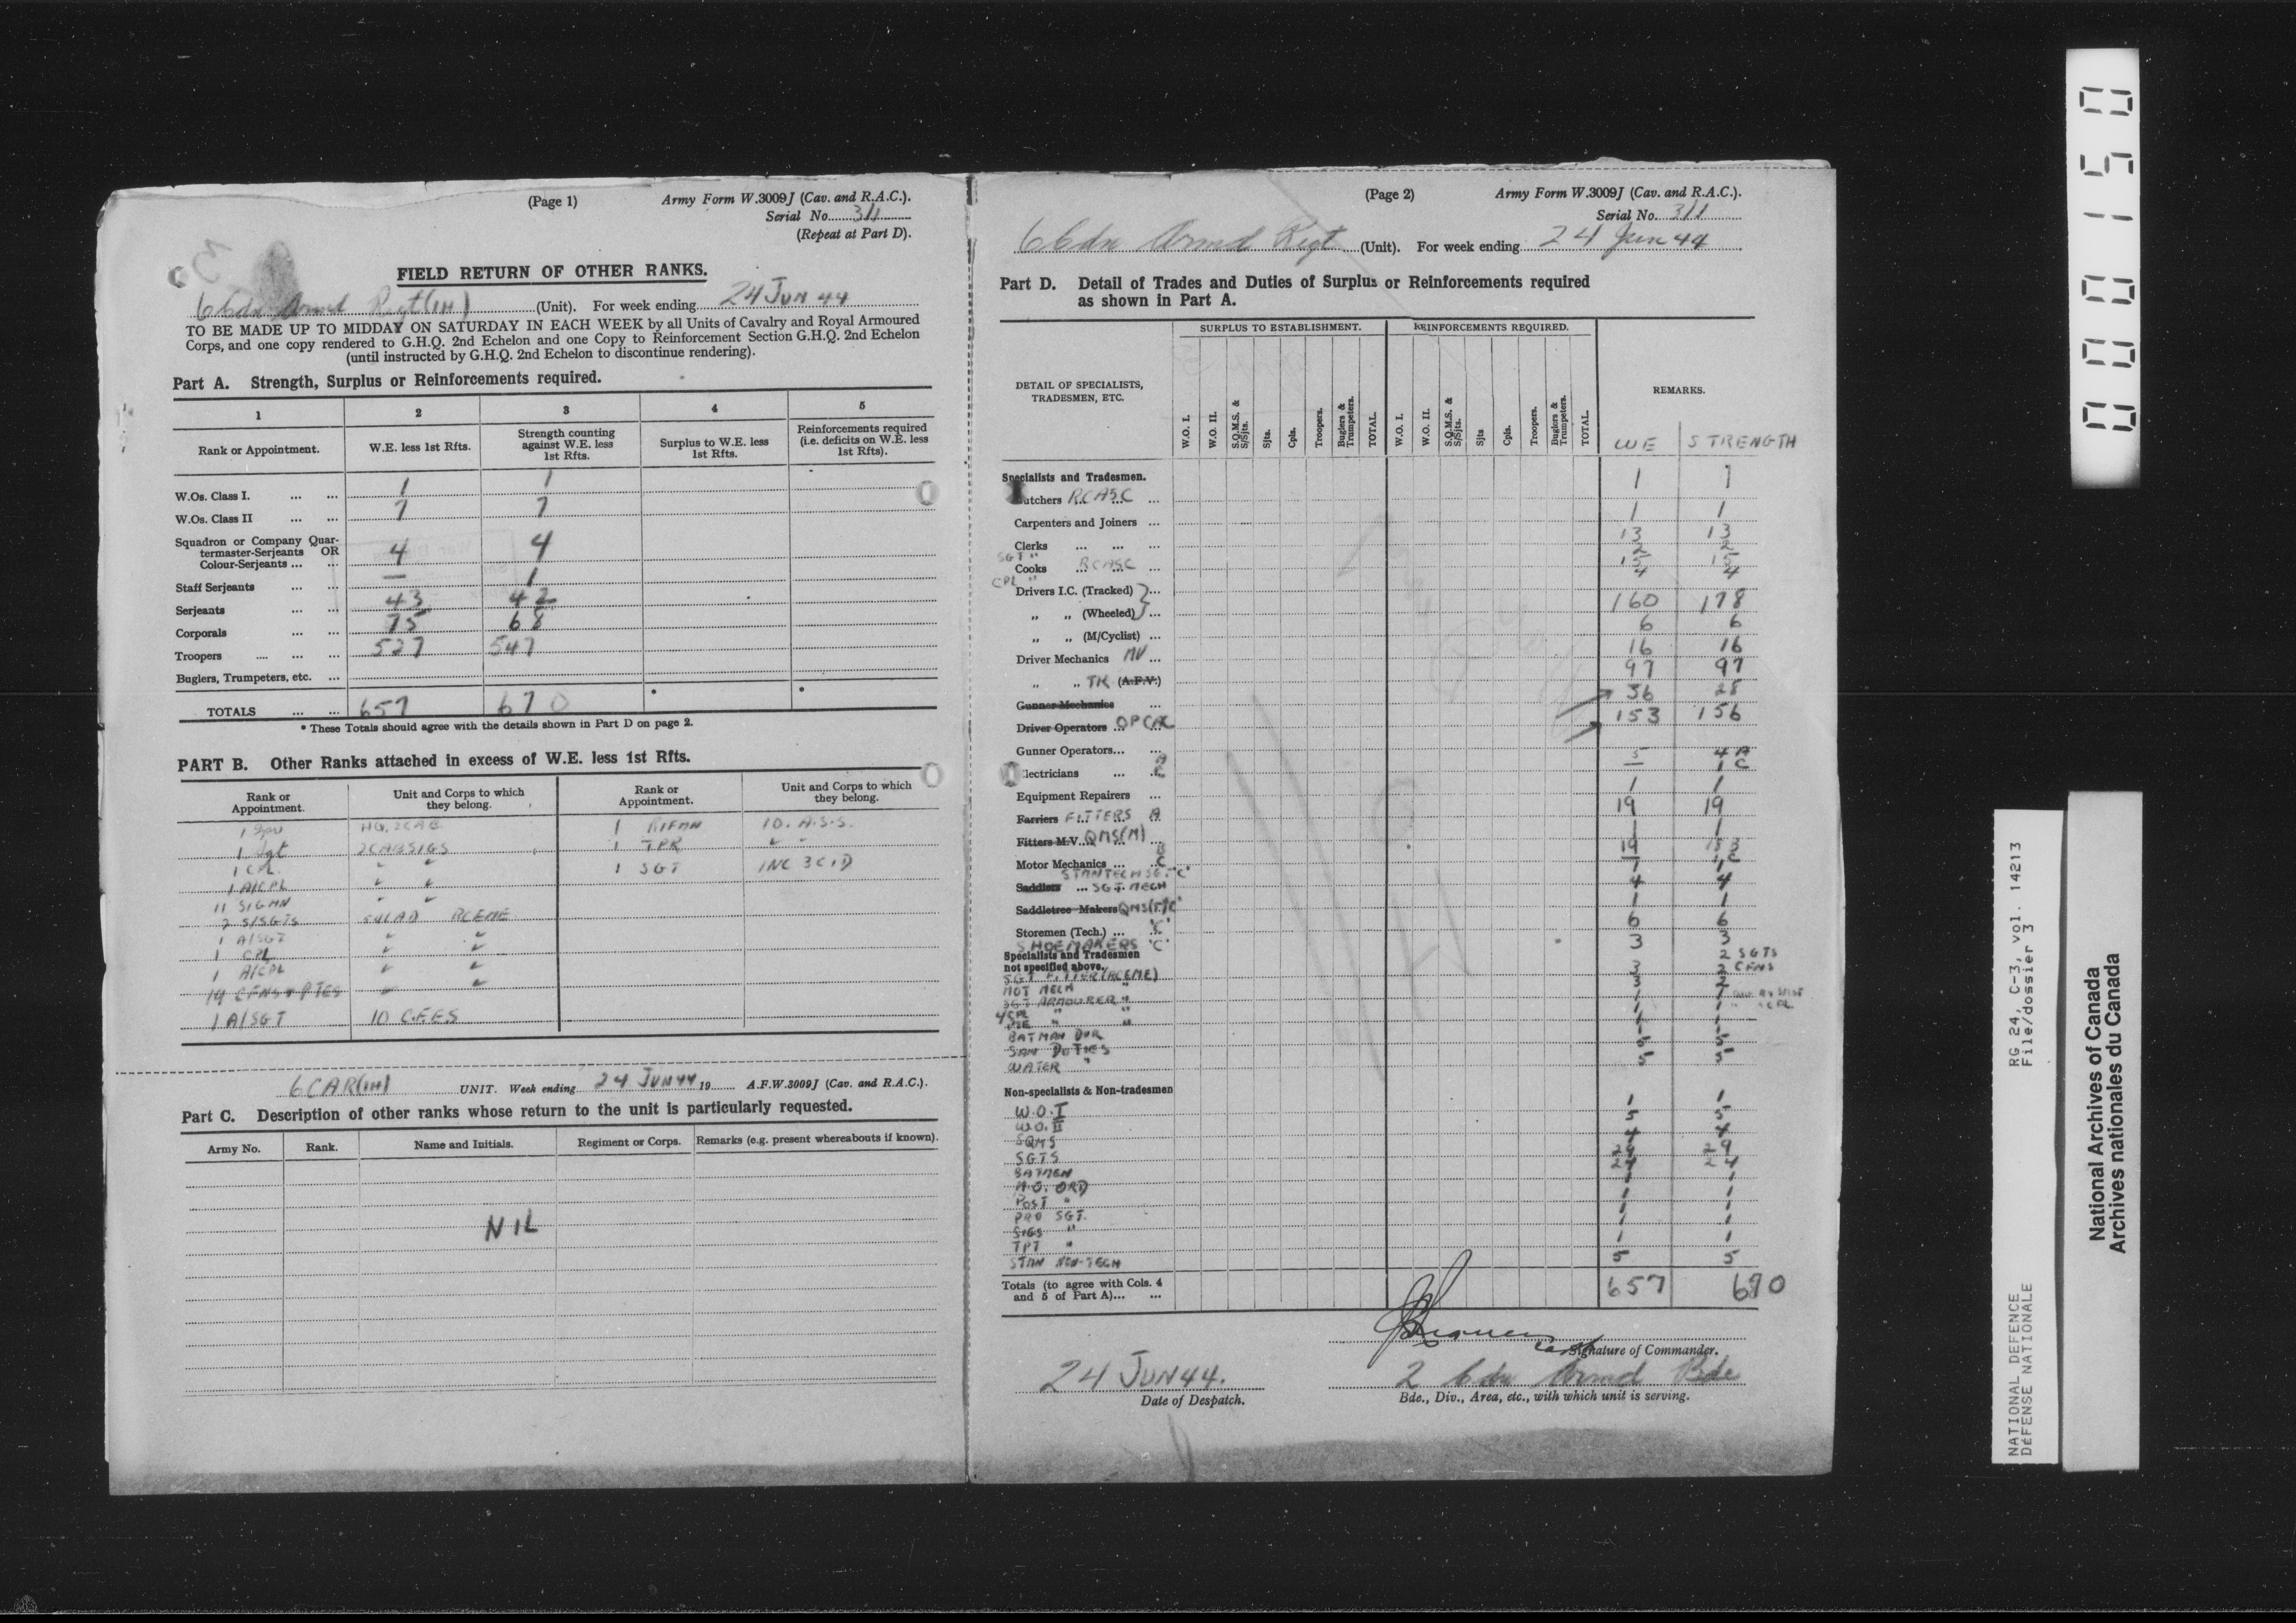 (Page 1)
Army Form W.3009J (Cav. and R.A.C.).
Serial No. 311
(Repeat at Part D).
FIELD RETURN OF OTHER RANKS.
6 Cdn Armd Regt (1H) (Unit). For week ending 24 JUN 44
TO BE MADE UP TO MIDDAY ON SATURDAY IN EACH WEEK by all Units of Cavalry and Royal Armoured
Corps, and one copy rendered to G.H.Q. 2nd Echelon and one Copy to Reinforcement Section G.H.Q. 2nd Echelon
(until instructed by G.H.Q. 2nd Echelon to discontinue rendering).
Part A. Strength, Surplus or Reinforcements required.
1 2 3 4 5
Rank or Appointment. W.E. less 1st Rfts. Strength counting against W.E. less 1st Rfts. Surplus to W.E. less 1st Rfts. Reinforcements required (i.e. deficits on W.E. less 1st Rfts).
W.Os. Class I. ... ... 1 1
W.Os. Class II ... ... 7 7
Squadron or Company Quar-
termaster-Serjeants OR
Colour-Serjeants ... ... 4 4
Staff Serjeants ... ... — 1
Serjeants ... ... 43 42
Corporals ... ... 75 68
Troopers .... ... ... 527 547
Buglers, Trumpeters, etc. ...
TOTALS ... ... 657 670 * *
* These Totals should agree with the details shown in Part D on page 2.
PART B. Other Ranks attached in excess of W.E. less 1st Rfts.
Rank or Appointment. Unit and Corps to which they belong. Rank or Appointment. Unit and Corps to which they belong.
1 Spr HQ. 2CAB 1 RIFMN 10. A.S.S.
1 Sgt 2CABSIGS 1 TPR " "
1 CPL " " 1 SGT INC 3 CID
1 A/CPL " "
11 SIGMN " "
2 S/SGTS LAD RCEME
1 A/SGT " "
1 CPL " "
1 A/CPL " "
14 CFNS & PTES " "
1 A/SGT 10 C.F.E.S
6CAR(1H) UNIT. Week ending 24 JUN 44 19 A.F.W.3009J (Cav. and R.A.C.).
Part C. Description of other ranks whose return to the unit is particularly requested.
Army No. Rank. Name and Initials. Regiment or Corps. Remarks (e.g. present whereabouts if known).
NIL
(Page 2)
Army Form W.3009J (Cav. and R.A.C.).
Serial No. 311
6 Cdn Armd Regt (Unit). For week ending 24 Jun 44
Part D. Detail of Trades and Duties of Surplus or Reinforcements required
as shown in Part A.
DETAIL OF SPECIALISTS, TRADESMEN, ETC. SURPLUS TO ESTABLISHMENT. REINFORCEMENTS REQUIRED. REMARKS.
W.O. I. W.O. II. S.Q.M.S. & S/Sjts. Sjts. Cpls. Troopers. Buglers & Trumpeters. TOTAL. W.O. I. W.O. II. S.Q.M.S. & S/Sjts. Sjts Cpls. Troopers. Buglers & Trumpeters. TOTAL. WE STRENGTH
Specialists and Tradesmen.
utchers RCASC ... 1 1
Carpenters and Joiners ... 1 1
Clerks ... ... ... 13 13
SGT " 2 2
Cooks RCASC ... 15 15
CPL " 4 4
Drivers I.C. (Tracked) ...
„ „ (Wheeled) ... 160 178
„ „ (M/Cyclist) ... 6 6
Driver Mechanics MV ... 16 16
„ „ TK (A.F.V.) 97 97
Gunner Mechanics ... 36 28
Driver Operators ... OP C 153 156
Gunner Operators... ...
lectricians ... A 5 4 A
C — 1 C
Equipment Repairers ... 1 1
Farriers FITTERS A 19 19
Fitters M.V. QMS(M) 1 1
Motor Mechanics ... B C 19
STMN TECH SGT "C" 7
Saddlers ... SGT. MECH 4 4
Saddletree Makers QMS(T) "C" 1 1
Storemen (Tech.) ... "C" 6 6
SHOEMAKERS "C" 3 3
Specialists and Tradesmen
not specified above.
SGT FITTER (RCEME) 3 2 SGTS
MOT MECH " 3 2 CFNS
SGT ARMOURER " 1 1
CPL " " 1 1
" " 1 1
BATMAN DVR
SAN DUTIES 5 5
WATER " 5 5
Non-specialists & Non-tradesmen
W.O. I 1 1
W.O. II 5 5
SQMS 4 4
SGTS 29 29
BATMEN 24 24
M.O. ORD 1 1
POST " 1 1
PRO SGT. 1 1
SIGS " 1 1
TPT " 1 1
STMN NON-TECH 5 5
Totals (to agree with Cols. 4
and 5 of Part A)... ... 657 670
Signature of Commander.
24 JUN 44.
Date of Despatch.
2 Cdn Armd Bde
Bde., Div., Area, etc., with which unit is serving.
000150
RG 24, C-3, vol. 14213
File/dossier 3
NATIONAL DEFENCE
DÉFENSE NATIONALE
National Archives of Canada
Archives nationales du Canada